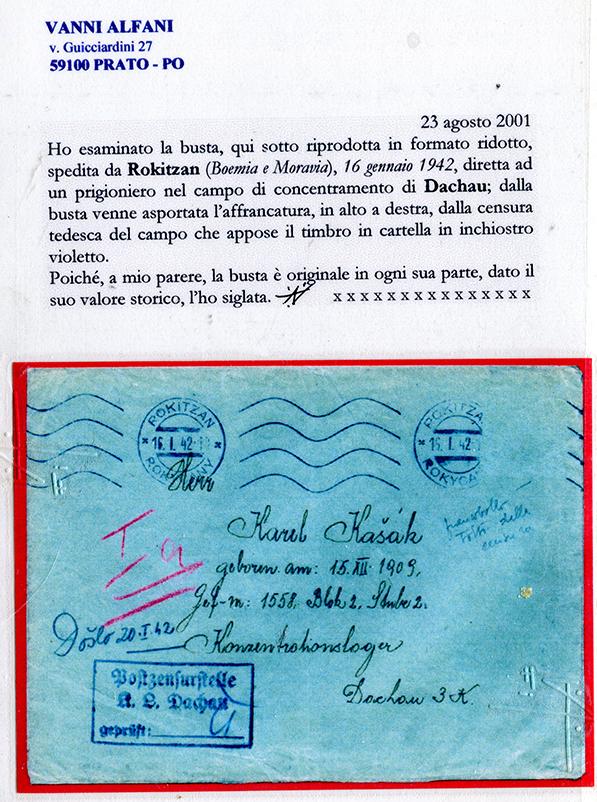 VANNI ALFANI
v. Guicciardini 27
59100 PRATO - PO
23 agosto 2001
Ho esaminato la busta, qui sotto riprodotta in formato ridotto,
spedita da Rokitzan (Boemia e Moravia), 16 gennaio 1942, diretta ad
un prigioniero nel campo di concentramento di Dachau; dalla
busta venne asportata l'affrancatura, in alto a destra, dalla censura
tedesca del campo che appose il timbro in cartella in inchiostro
violetto.
Poiché, a mio parere, la busta è originale in ogni sua parte, dato il
suo valore storico, l'ho siglata. x x x x x x x x x x x x x x x
ROKITZAN
* 16. I. 42
ROKYCANY
ROKITZA
* 16. I. 42
ROKYCA
Herr
Karel Kašák
geboren am: 15. XII. 1909.
Gef-nr: 1558. Blok 2. Stube 2.
Konzentrationslager
Dachau 3 K.
francobollo
Tolto dalla
censura
Došlo 20. I. 42
Postzensurstelle
K. L. Dachau
geprüft: